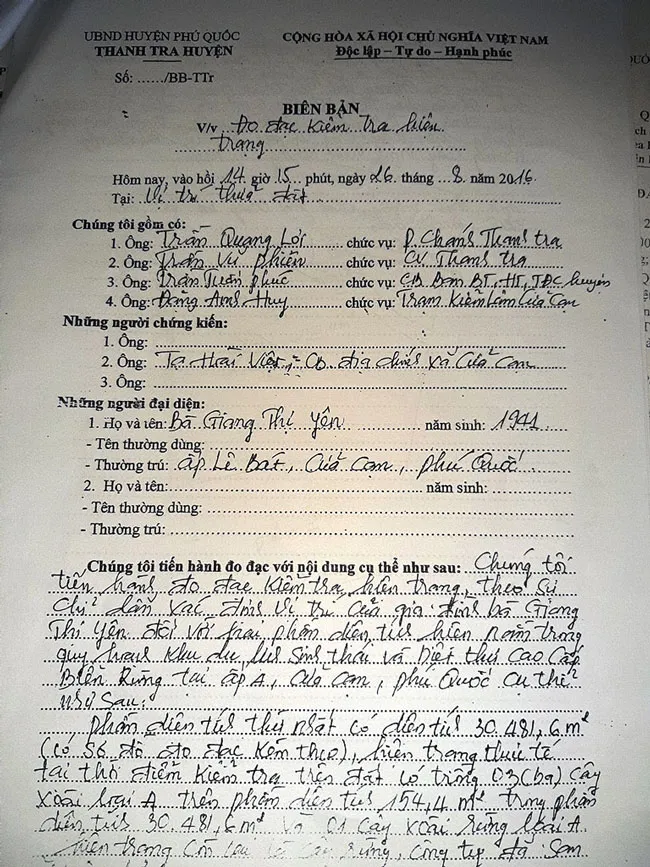 UBND HUYỆN PHÚ QUỐC
THANH TRA HUYỆN
CỘNG HÒA XÃ HỘI CHỦ NGHĨA VIỆT NAM
Độc lập – Tự do – Hạnh phúc
Số: ....../BB-TTr
BIÊN BẢN
V/v Đo đạc kiểm tra hiện
trạng
Hôm nay, vào hồi 14 giờ 15 phút, ngày 26 tháng 8 năm 2016
Tại: Vị trí thửa đất
Chúng tôi gồm có:
1. Ông: Trần Quang Lợi chức vụ: P. Chánh Thanh tra
2. Ông: Trần Vũ Phiên chức vụ: CV Thanh tra
3. Ông: Trần Tuấn Phúc chức vụ: CB Ban BT, HT, TĐC huyện
4. Ông: Đặng Anh Huy chức vụ: Trạm Kiểm Lâm Cửa Cạn
Những người chứng kiến:
1. Ông:
2. Ông: Tạ Hải Việt - CB địa chính xã Cửa Cạn
3. Ông:
Những người đại diện:
1. Họ và tên: Bà Giang Thị Yên năm sinh: 1941
- Tên thường dùng:
- Thường trú: ấp Lê Bát, Cửa Cạn, Phú Quốc
2. Họ và tên: năm sinh:
- Tên thường dùng:
- Thường trú:
Chúng tôi tiến hành đo đạc với nội dung cụ thể như sau: Chúng tôi
tiến hành đo đạc kiểm tra hiện trạng, theo sự
chỉ dẫn xác định vị trí của gia đình bà Giang
Thị Yên đối với hai phần diện tích hiện nằm trong
quy hoạch Khu du lịch sinh thái và biệt thự cao cấp
Biển Rừng tại ấp 4, Cửa Cạn, Phú Quốc cụ thể
như sau:
phần diện tích thứ nhất có diện tích 30.481,6 m²
(có sơ đồ đo đạc kèm theo), hiện trạng thực tế
tại thời điểm kiểm tra trên đất có trồng 03 (ba) cây
xoài loại A trên phần diện tích 154,4 m² trong phần
diện tích 30.481,6 m² và 01 cây xoài rừng loại A.
hiện trạng còn lại là cây rừng, công ty đã san